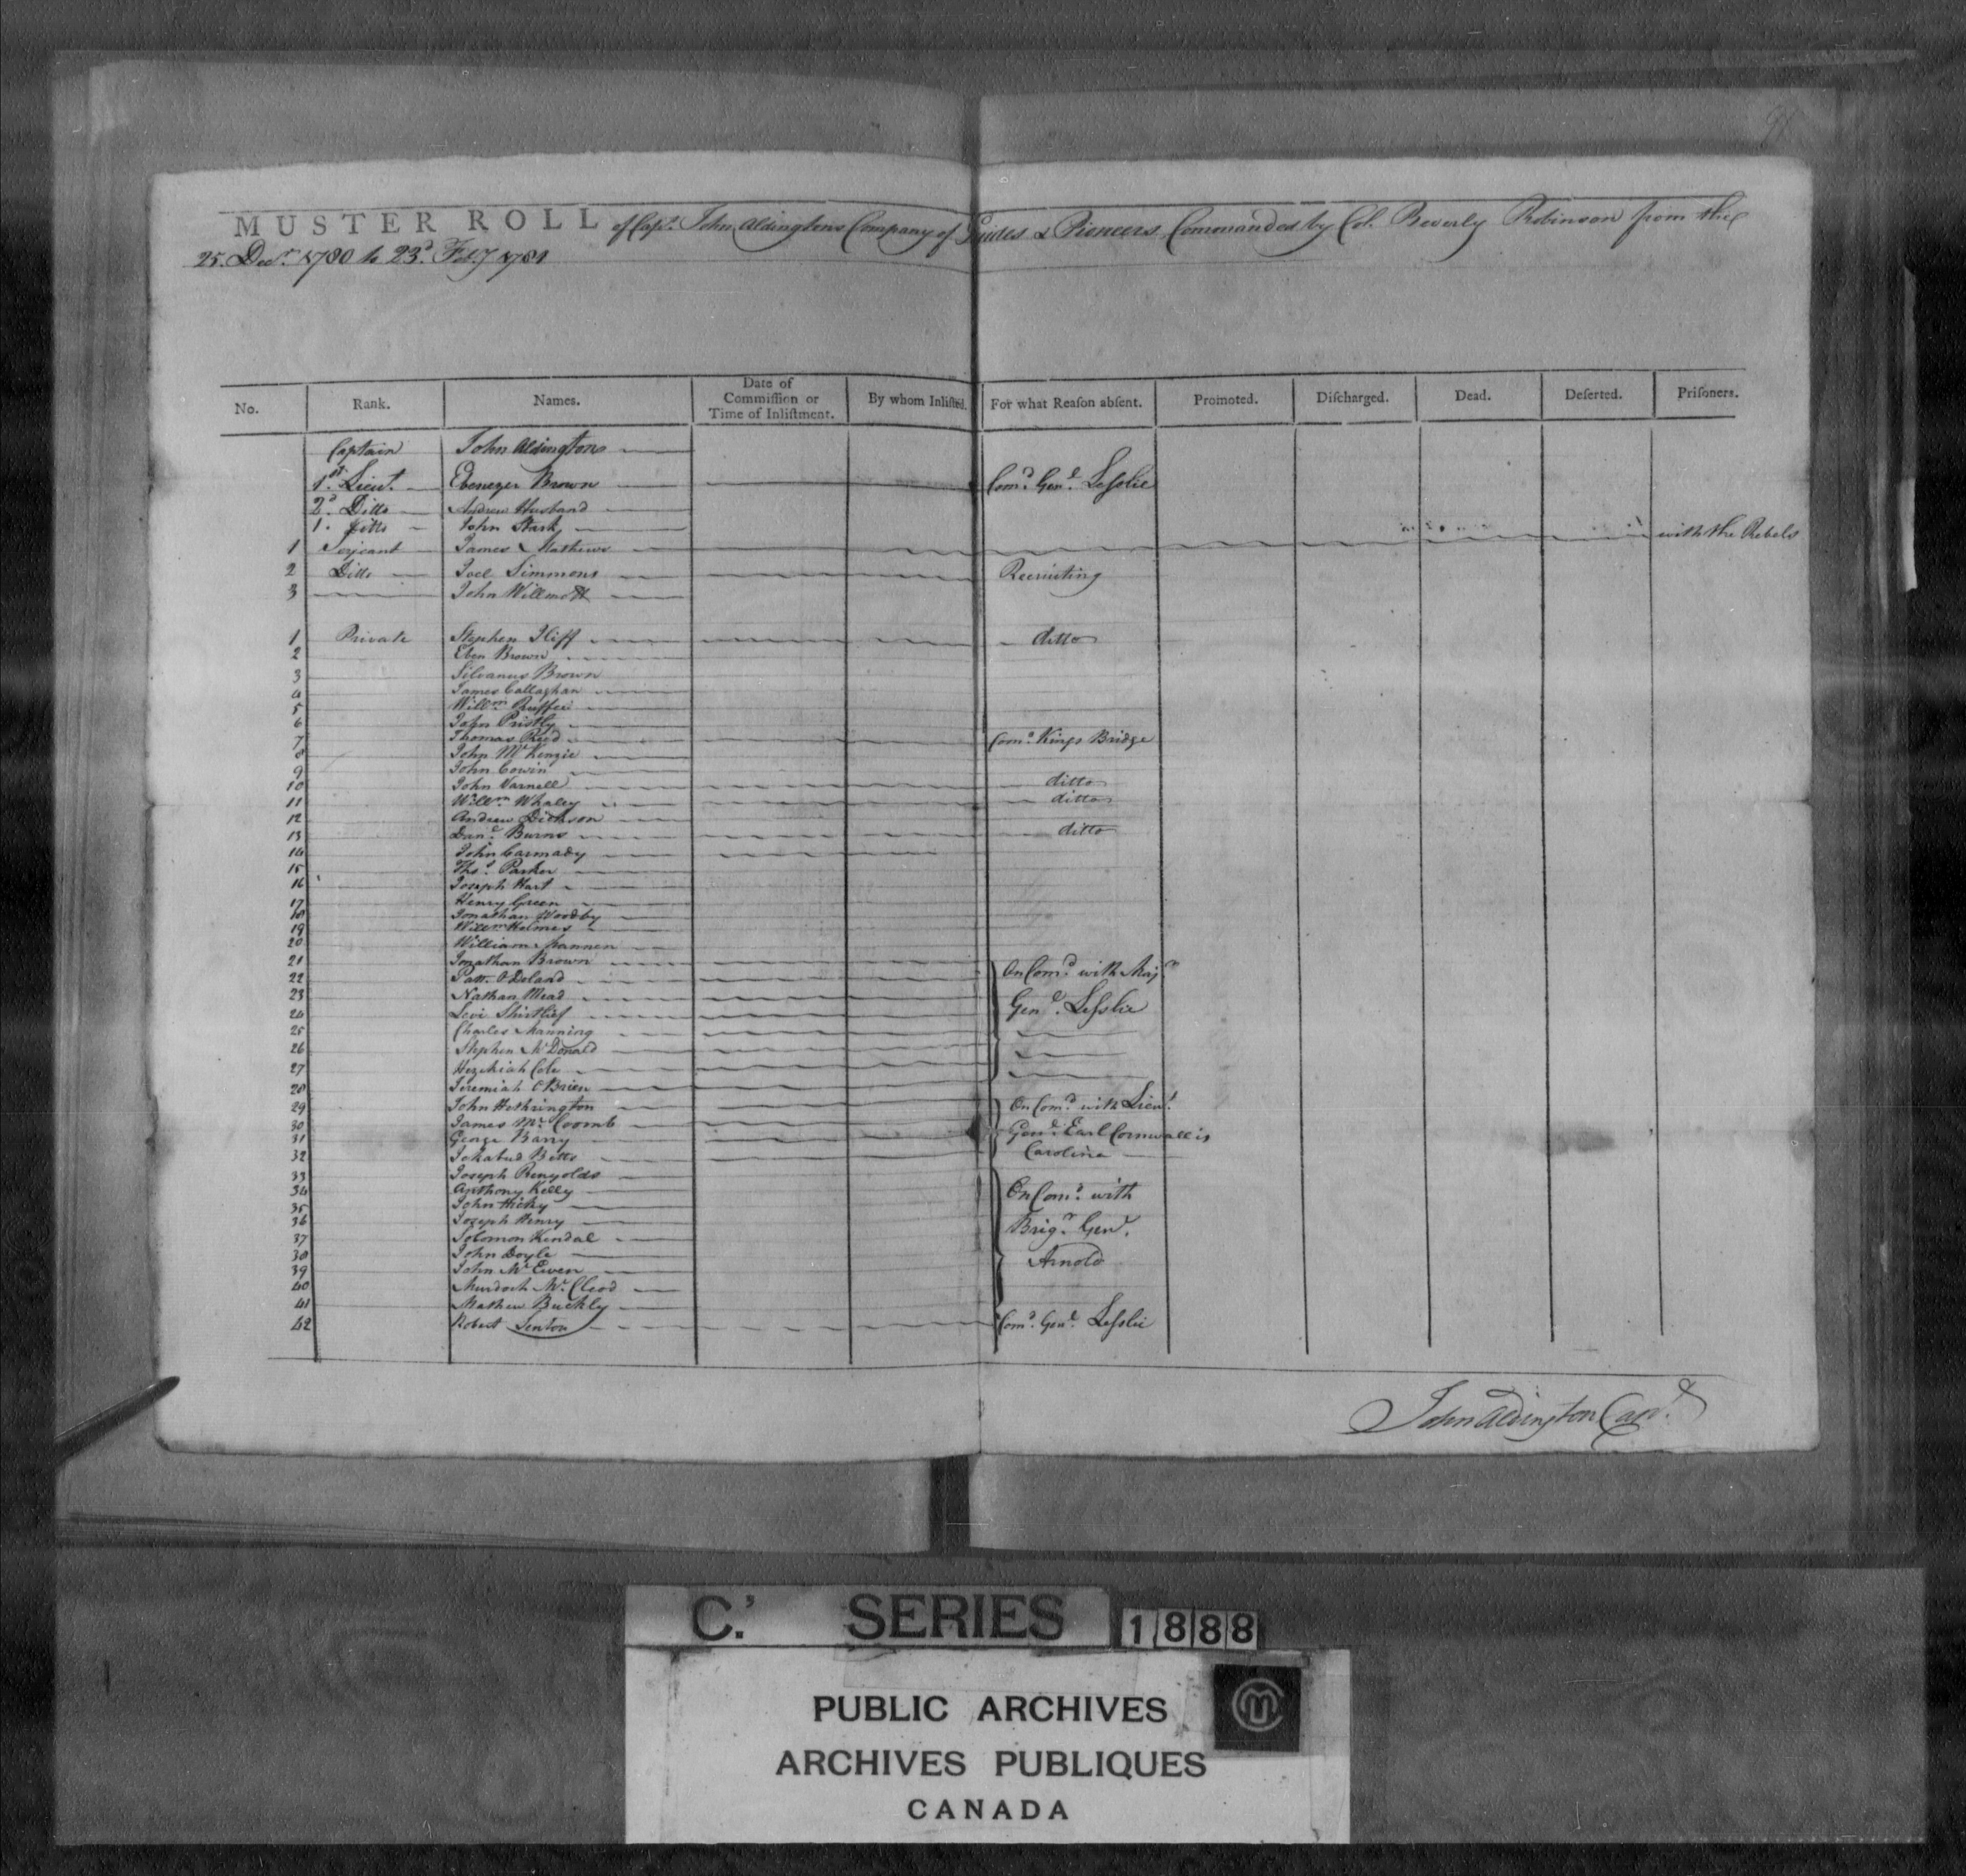 MUSTER ROLL of Capt. John Aldingtons Company of Guides & Pioneers Commanded by Col. Beverly Robinson from the
25. Decr. 1780 to 23d. Feby 1781
No. Rank. Names. Date of Commiſſion or Time of Inliſtment. By whom Inliſted. For what Reaſon abſent. Promoted. Diſcharged. Dead. Deſerted. Priſoners.
Captain John Aldingtons
1st. Lieut. Ebenezer Brown Comd. Genl. Leſslie
2d. Ditto Andrew Husband
1. Ditto John Stark
1 Serjeant James Mathews with the Rebels
2 Ditto Joel Simmons Recruiting
3 John Willmott
1 Private Stephen Iliff ditto
2 Eben Brown
3 Silvanus Brown
4 James Callaghan
5 Willm.
6 John Pristly
7 Thomas Reed Comd. Kings Bridge
8 John Mc.Kenzie
9 John Cowin
10 John Varnell ditto
11 Willm. Whaley ditto
12 Andrew Dickson
13 Danl. Burns ditto
14 John Carmady
15 Thos. Parker
16 Joseph Hart
17 Henry Green
18 Jonathan Woodby
19 Willm Holmes
20 William
21 Jonathan Brown On Comd. with Majr
22 Patt. O Deland
23 Nathan Mead Genl. Leſslie
24 Levi Shirtlief
25 Charles Manning
26 Stephen Mc Donald
27 Hezekiah Cole
28 Jeremiah O Brien
29 John Hethrington On Comd. with Lieut.
30 James Mc. Coomb Genl. Earl Cornwallis
31 George Barry
32 Ickabud Betts Carolina
33 Joseph Renyolds
34 Anthony Kelly On Comd. with
35 John Hicky
36 Joseph Henry Brigr. Genl.
37 Solomon Kendal
38 John Doyle Arnold
39 John Mc. Ewen
40 Murdoch Mc. Cleod
41 Mathew Buckly
42 Robert Senton Comd. Genl. Leſslie
John Aldington Capt.
C.' SERIES 1888
PUBLIC ARCHIVES
ARCHIVES PUBLIQUES
CANADA